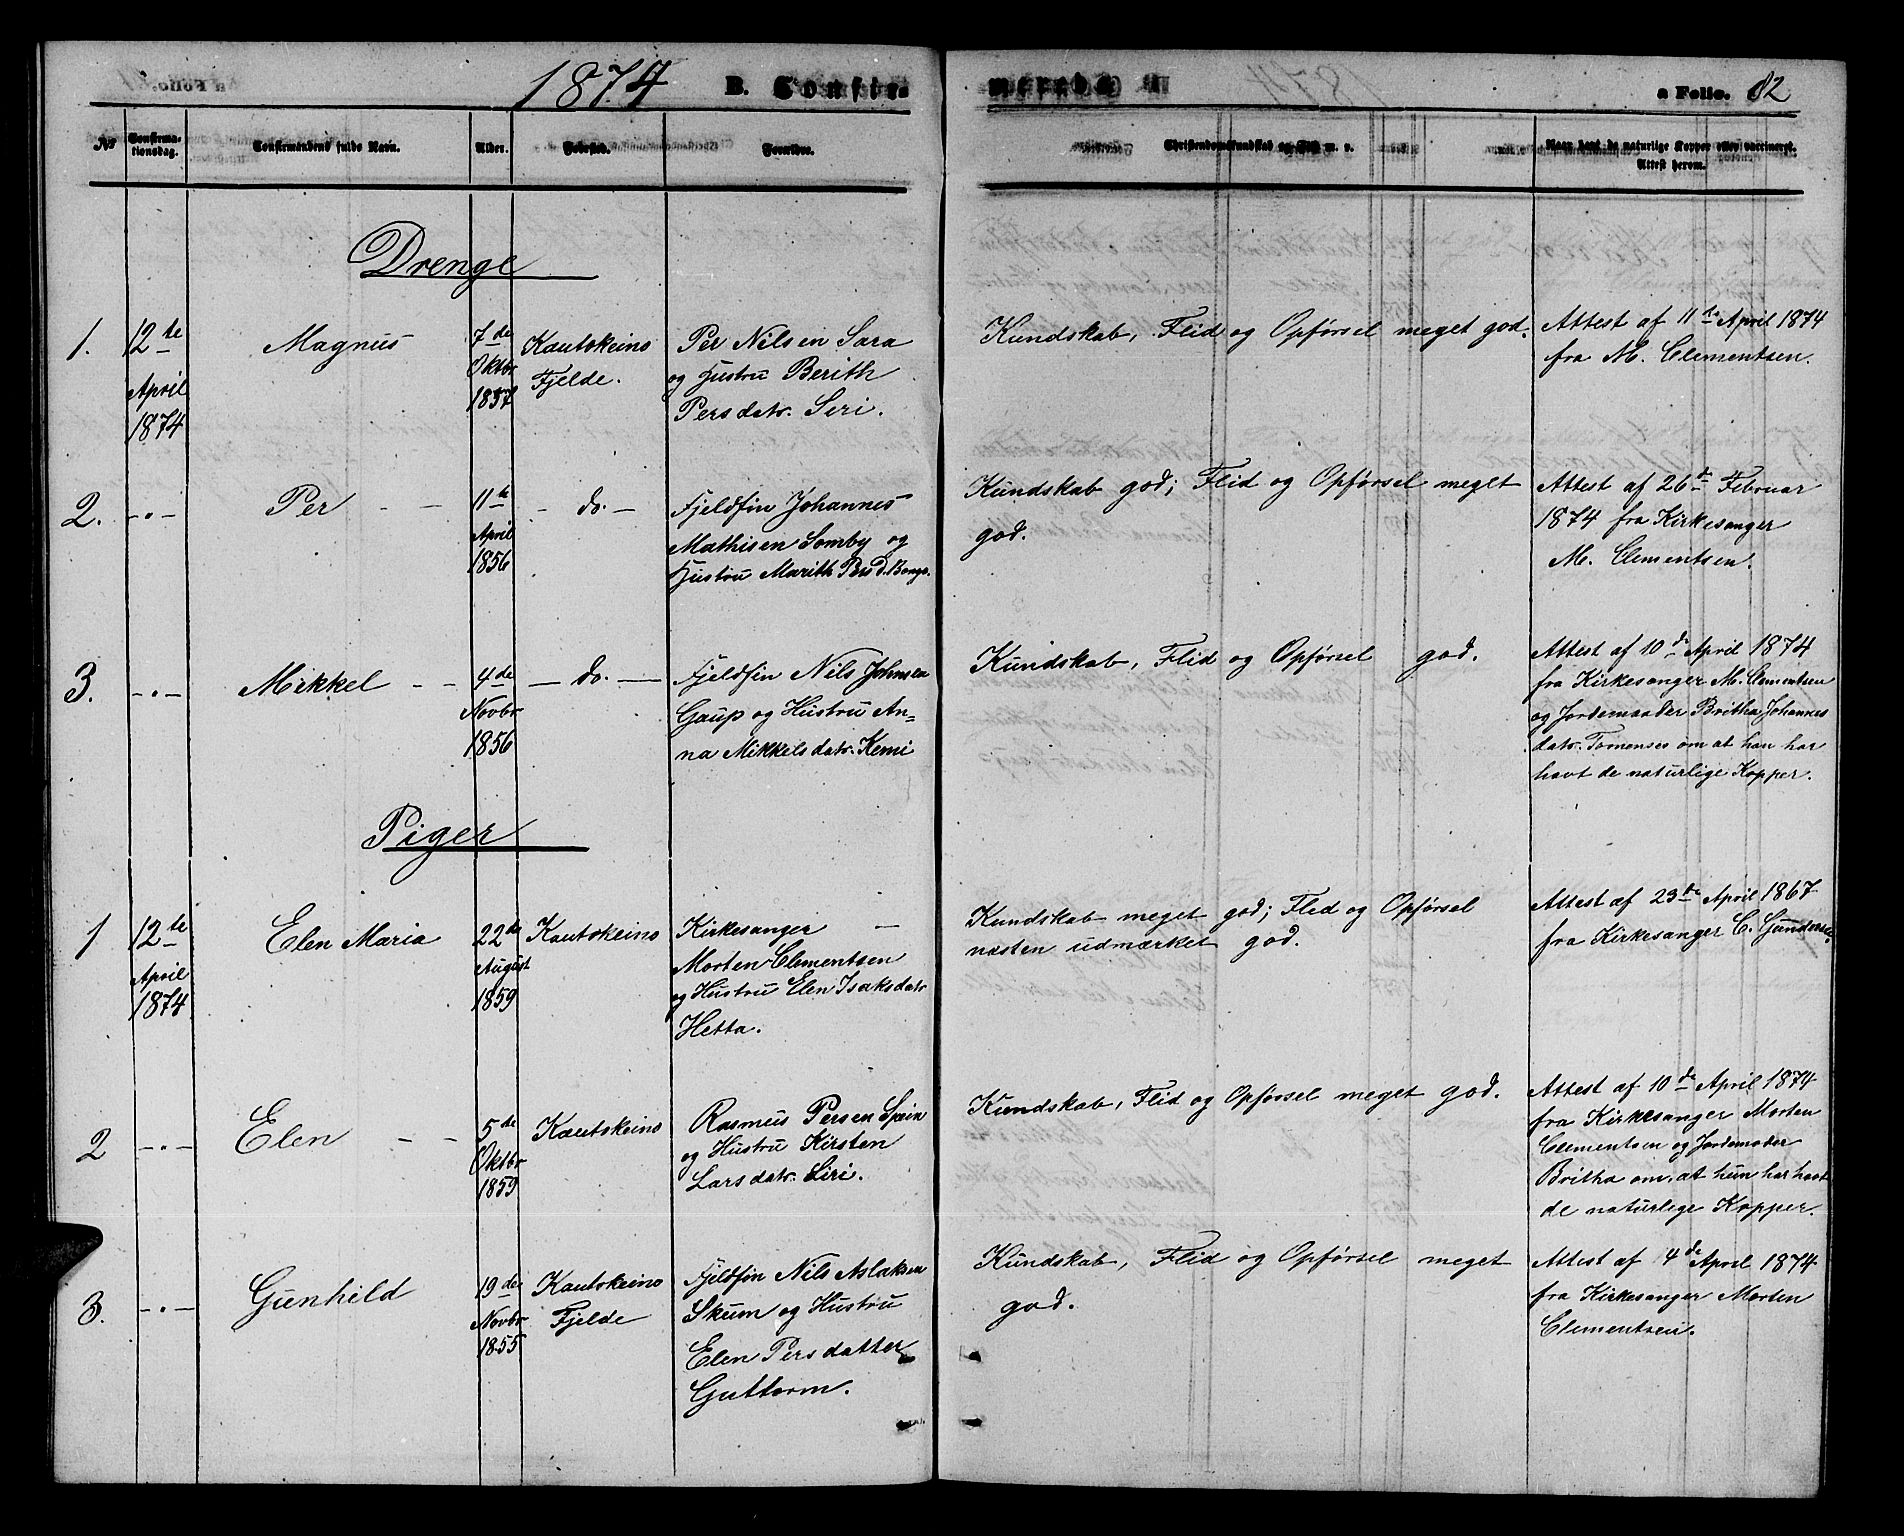 1874 B. Confir-
merede a Folio. 82
Nr
Confirma-
tionsdag.
Confirmandens fulde Navn.
Alder.
Fødested.
Forældre.
Christendomskundskab og Flid m. v.
Naar havt de naturlige Kopper eller vaccineret.
Attest herom.
Drenge
1. 12te April 1874
Magnus
7de Oktbr 1857
Kautokeino
Fjelde.
Per Nilsen Sara
og Hustru Berith
Persdatr. Siri.
Kundskab, Flid og Opførsel meget god.
Attest af 11te April 1874
fra M. Clementsen.
2. -"-
Per - -
11te April 1856
- do. -
Fjeldfin Johannes
Mathisen Somby og
Hustru Marith Persd. Bongo.
Kundskab god; Flid og Opførsel meget
god.
Attest af 26de Februar
1874 fra Kirkesanger
M. Clementsen.
3. -"-
Mikkel - -
4de Novbr 1856
- do. -
Fjeldfin Nils Johnsen
Gaup og Hustru An=
na Mikkelsdatr. Kemi
Kundskab, Flid og Opførsel god.
Attest af 10de April 1874
fra Kirkesanger M. Clementsen
og Jordemoder Britha Johannes
datr. Tornenses om at han har
havt de naturlige Kopper.
Piger
1 12te April 1874
Elen Maria
22de August 1859
Kautokeino
Kirkesanger -
Morten Clementsen
og Hustru Elen Isaksdatr
Hetta.
Kundskab meget god; Flid og Opførsel
næsten udmærket god.
Attest af 23de April 1867
fra Kirkesanger C. Gundersen.
2 -"-
Elen - -
5de Oktbr 1859
Kautokeino
Rasmus Persen Spein
og Hustru Kirsten
Larsdatr. Siri.
Kundskab, Flid og Opførsel meget god.
Attest af 10de April 1874
fra Kirkesanger Morten
Clementsen og Jordemoder
Britha om, at hun har havt
de naturlige Kopper.
3. -"-
Gunhild
19de Novbr 1855
Kautokeino
Fjelde
Fjeldfin Nils Aslaksen
Skum og Hustru
Elen Persdatter
Guttorm.
Kundskab, Flid og Opførsel meget
god.
Attest af 4de April 1874
fra Kirkesanger Morten
Clementsen.